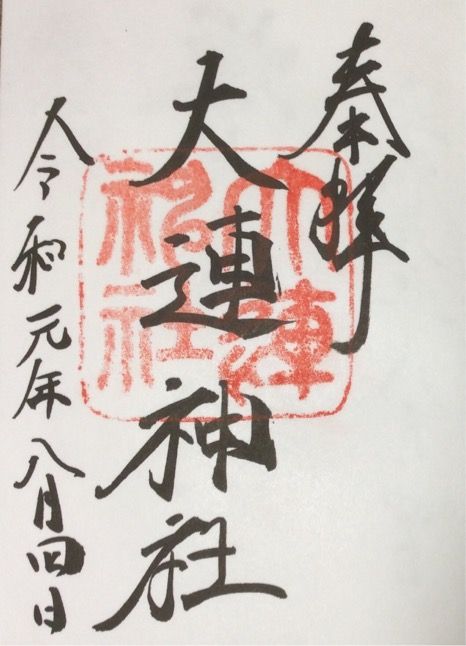 奉拝
大連神社
大連神社
令和元年八月四日